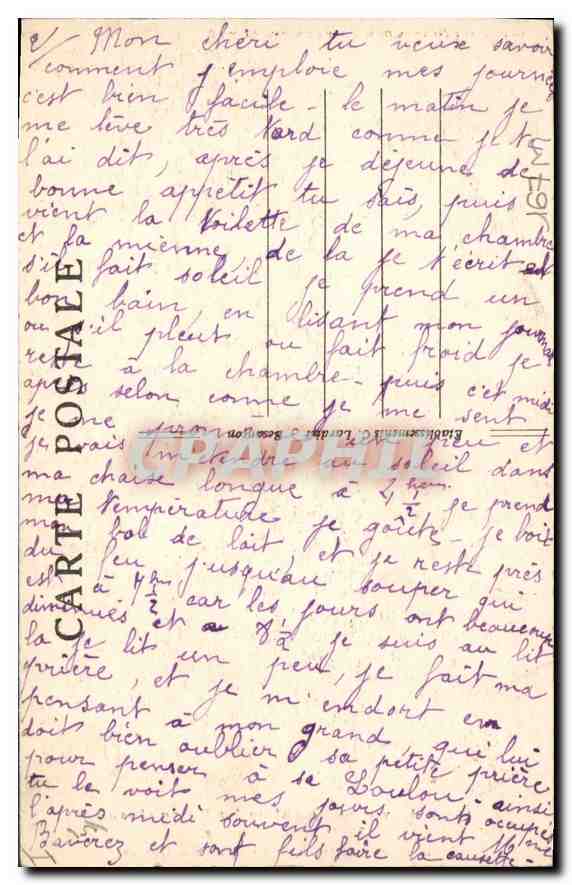 2/ Mon chéri tu veux savoir
comment j'emploie mes journées
c'est bien facile - le matin je
me lève très tard comme je t'
l'ai dit, après je déjeune de
bonne appétit tu sais, puis
vient la toilette de ma chambre
et la mienne, de la je t'écrit et
s'il fait soleil je prend un
bon bain, en lisant mon journal
ou s'il pleut ou fait froid je
reste à la chambre - puis c'est midi
après selon comme je me sent
je me un peu et
je vais m'étendre au soleil dans
ma chaise longue à 4 heures 1/2 je prend
ma température je goûte - je bois
mon bol de lait, et je reste près
du feu jusqu'au souper qui
est à heures 1/2 car les jours ont beaucoup
diminués et a 8 1/2 je suis au lit
la je lit un peu, je fait ma
prière, et je m'endort en
pensant à mon grand qui lui
doit bien oublier sa petite prière
pour penser à sa Loulou - ainsi
tu le voit mes jours sont occupés
l'après midi souvent il vient Mme
Baverez et sont fils faire la causette -
CARTE POSTALE
Etablissements C. Lardier, Besançon
CPAPHIL